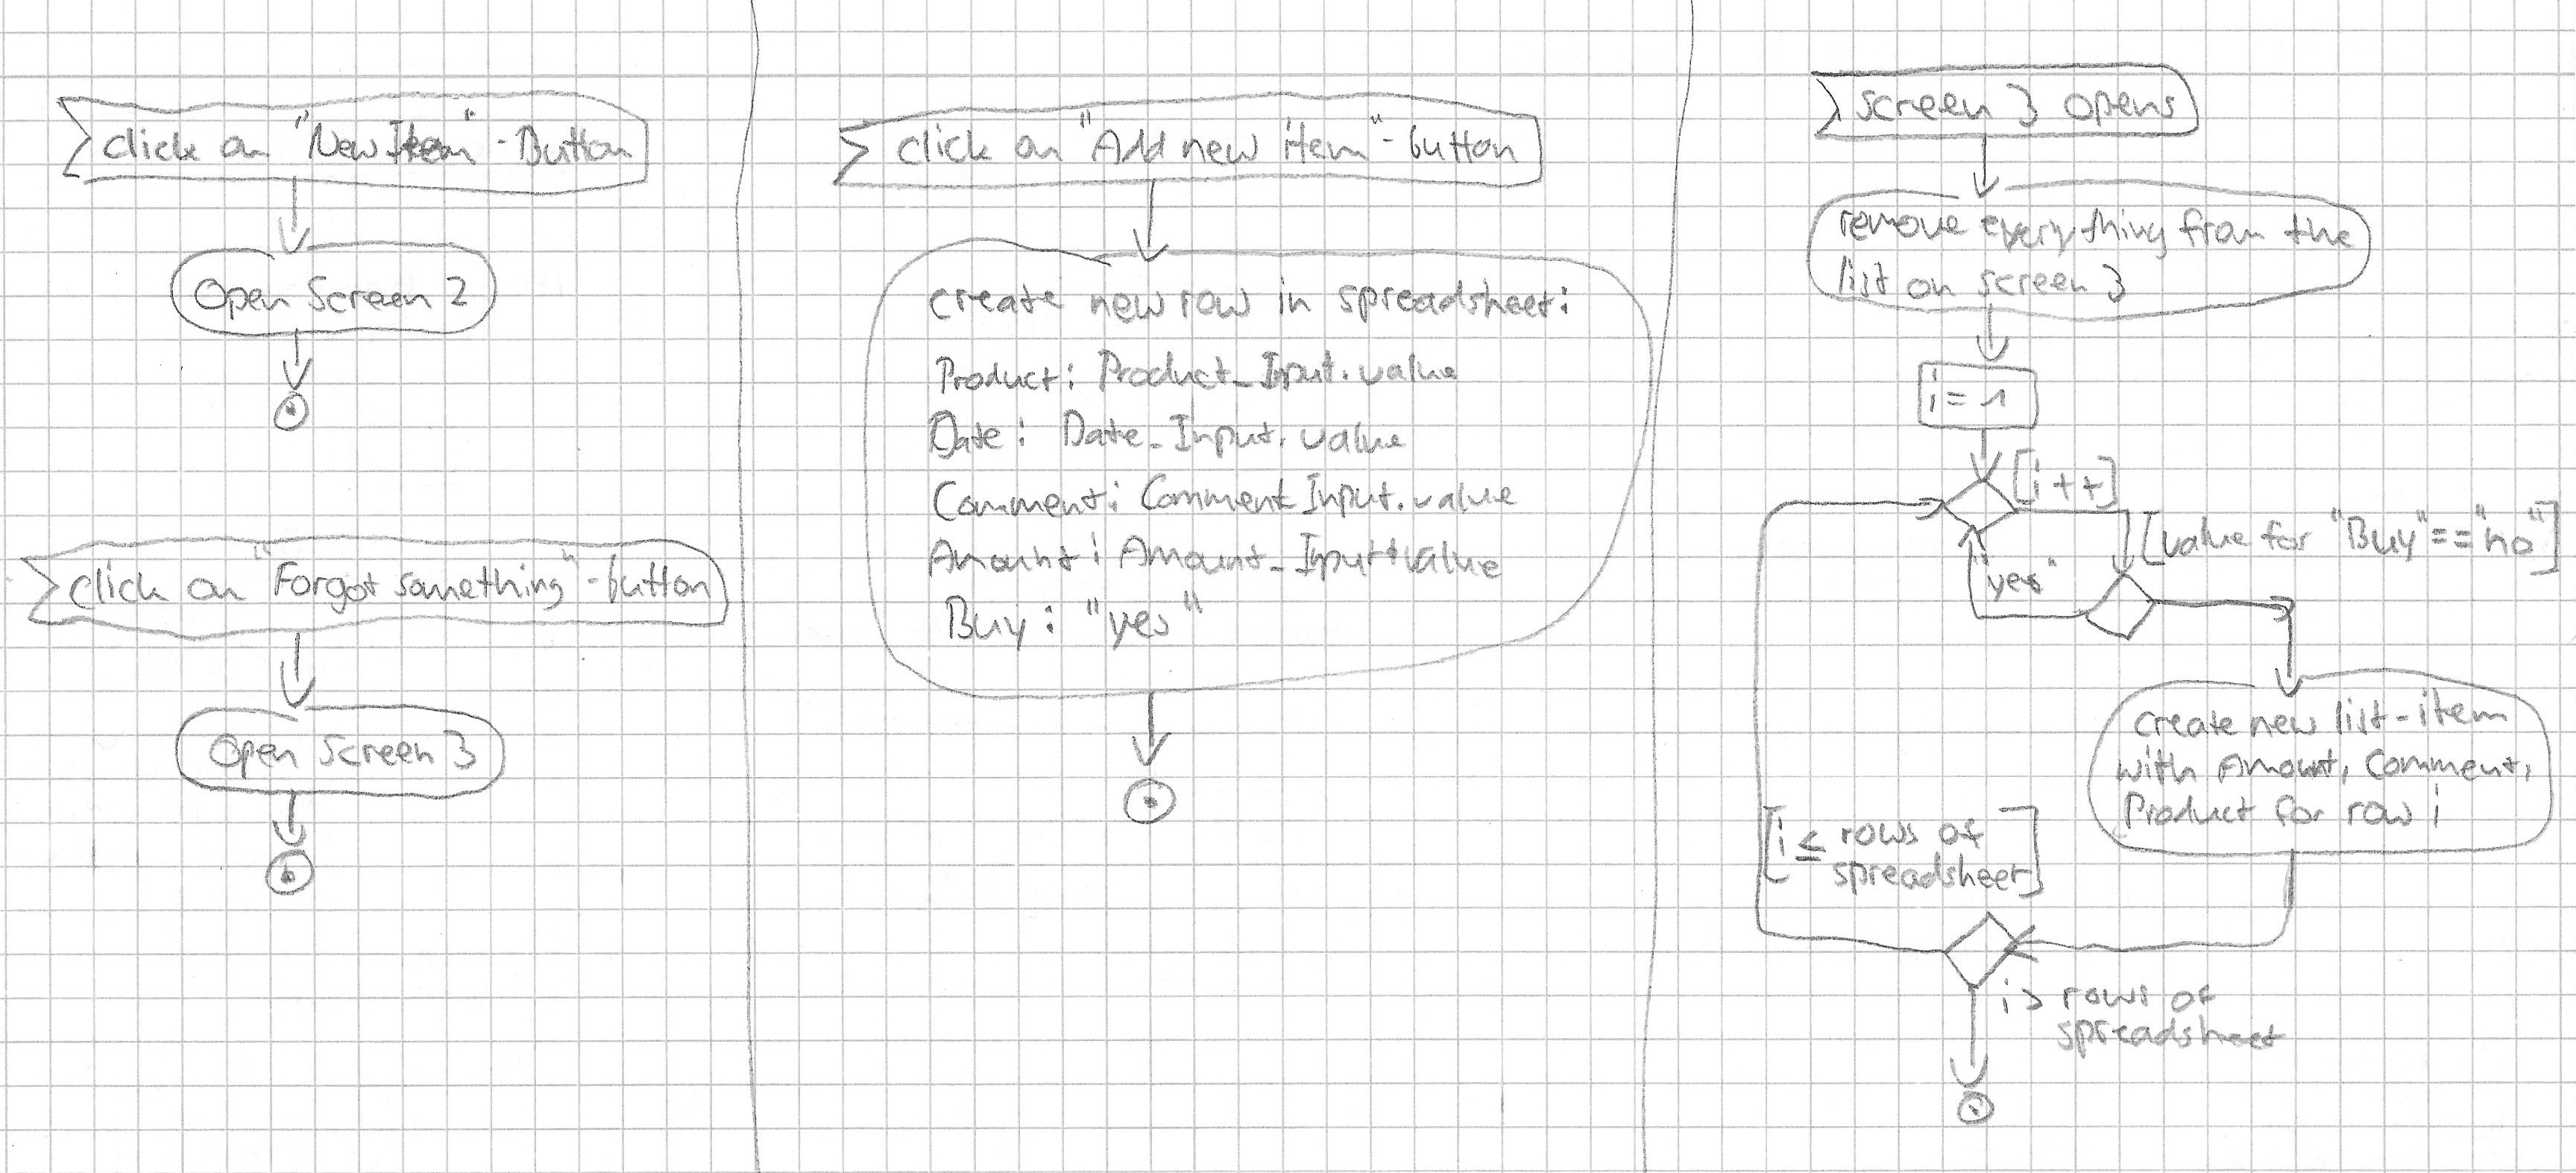 click on "New Item"-Button
Open Screen 2
click on "Forgot something"-button
Open Screen 3
click on "Add new item"-button
create new row in spreadsheet:
Product: Product_Input.value
Date: Date_Input.value
Comment: Comment_Input.value
Amount: Amount_Input.value
Buy: "yes"
screen 3 opens
remove everything from the
list on screen 3
i = 1
[i++]
[value for "Buy"=="no"]
"yes"
create new list-item
with Amount, Comment,
Product for row i
[i ≤ rows of
spreadsheet]
i > rows of
spreadsheet